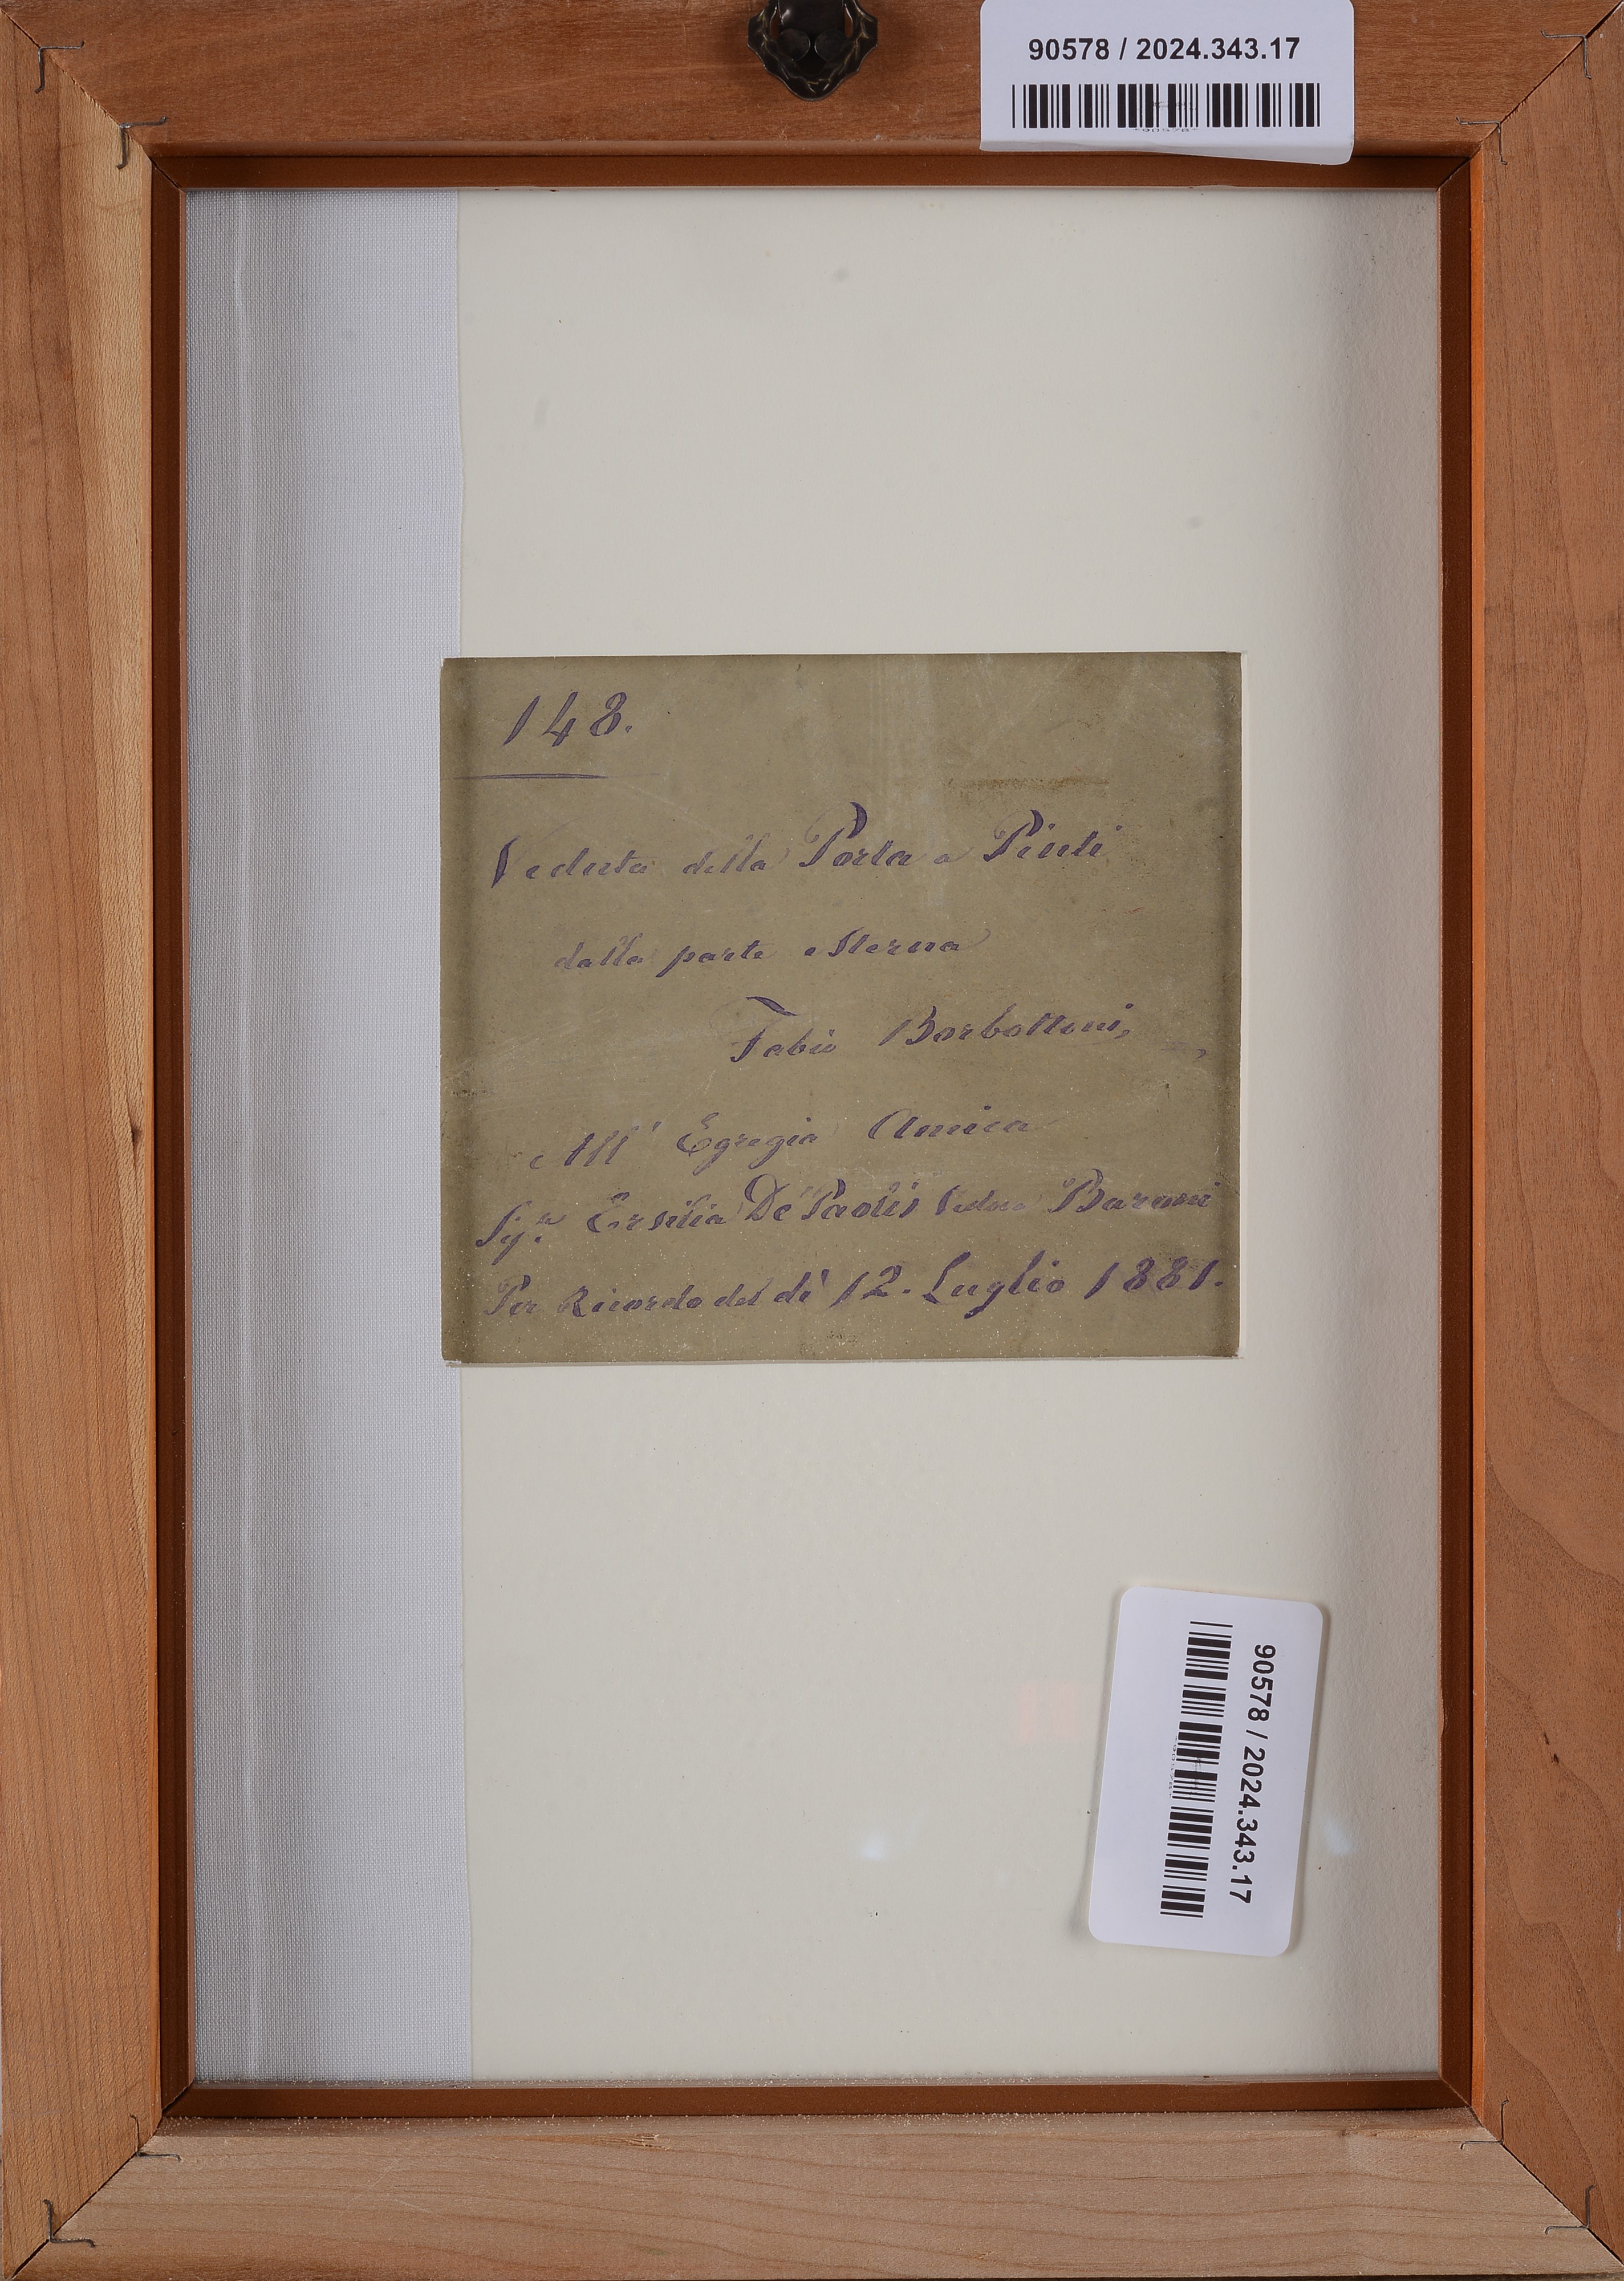 90578 / 2024.343.17
148.
Veduta della Porta a Pinti
dalla parte esterna
Fabio Borbottoni,
All' Egregia Amica
Sig.ra Ersilia De' Paolis Vedova Baroni
Per Ricordo del dì 12. Luglio 1881.
90578 / 2024.343.17